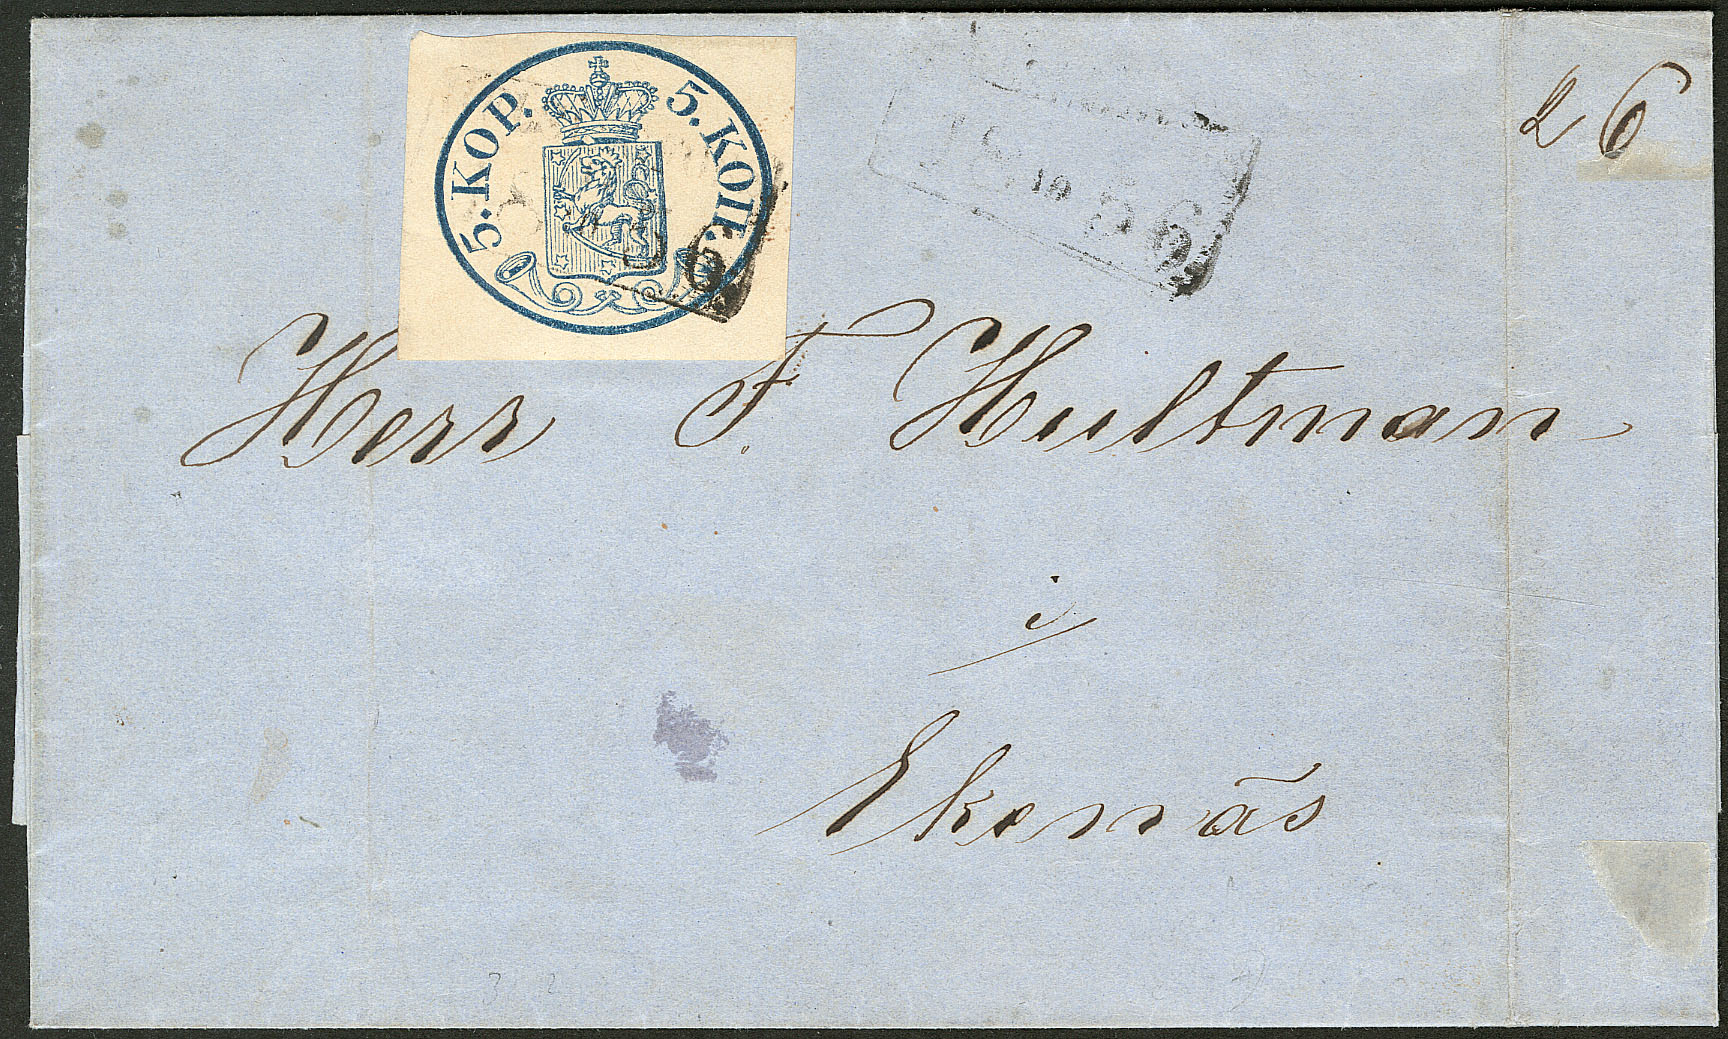 5. KOP. 5. КОП.
26
1856
Herr F. Hultman
i
Ekenäs